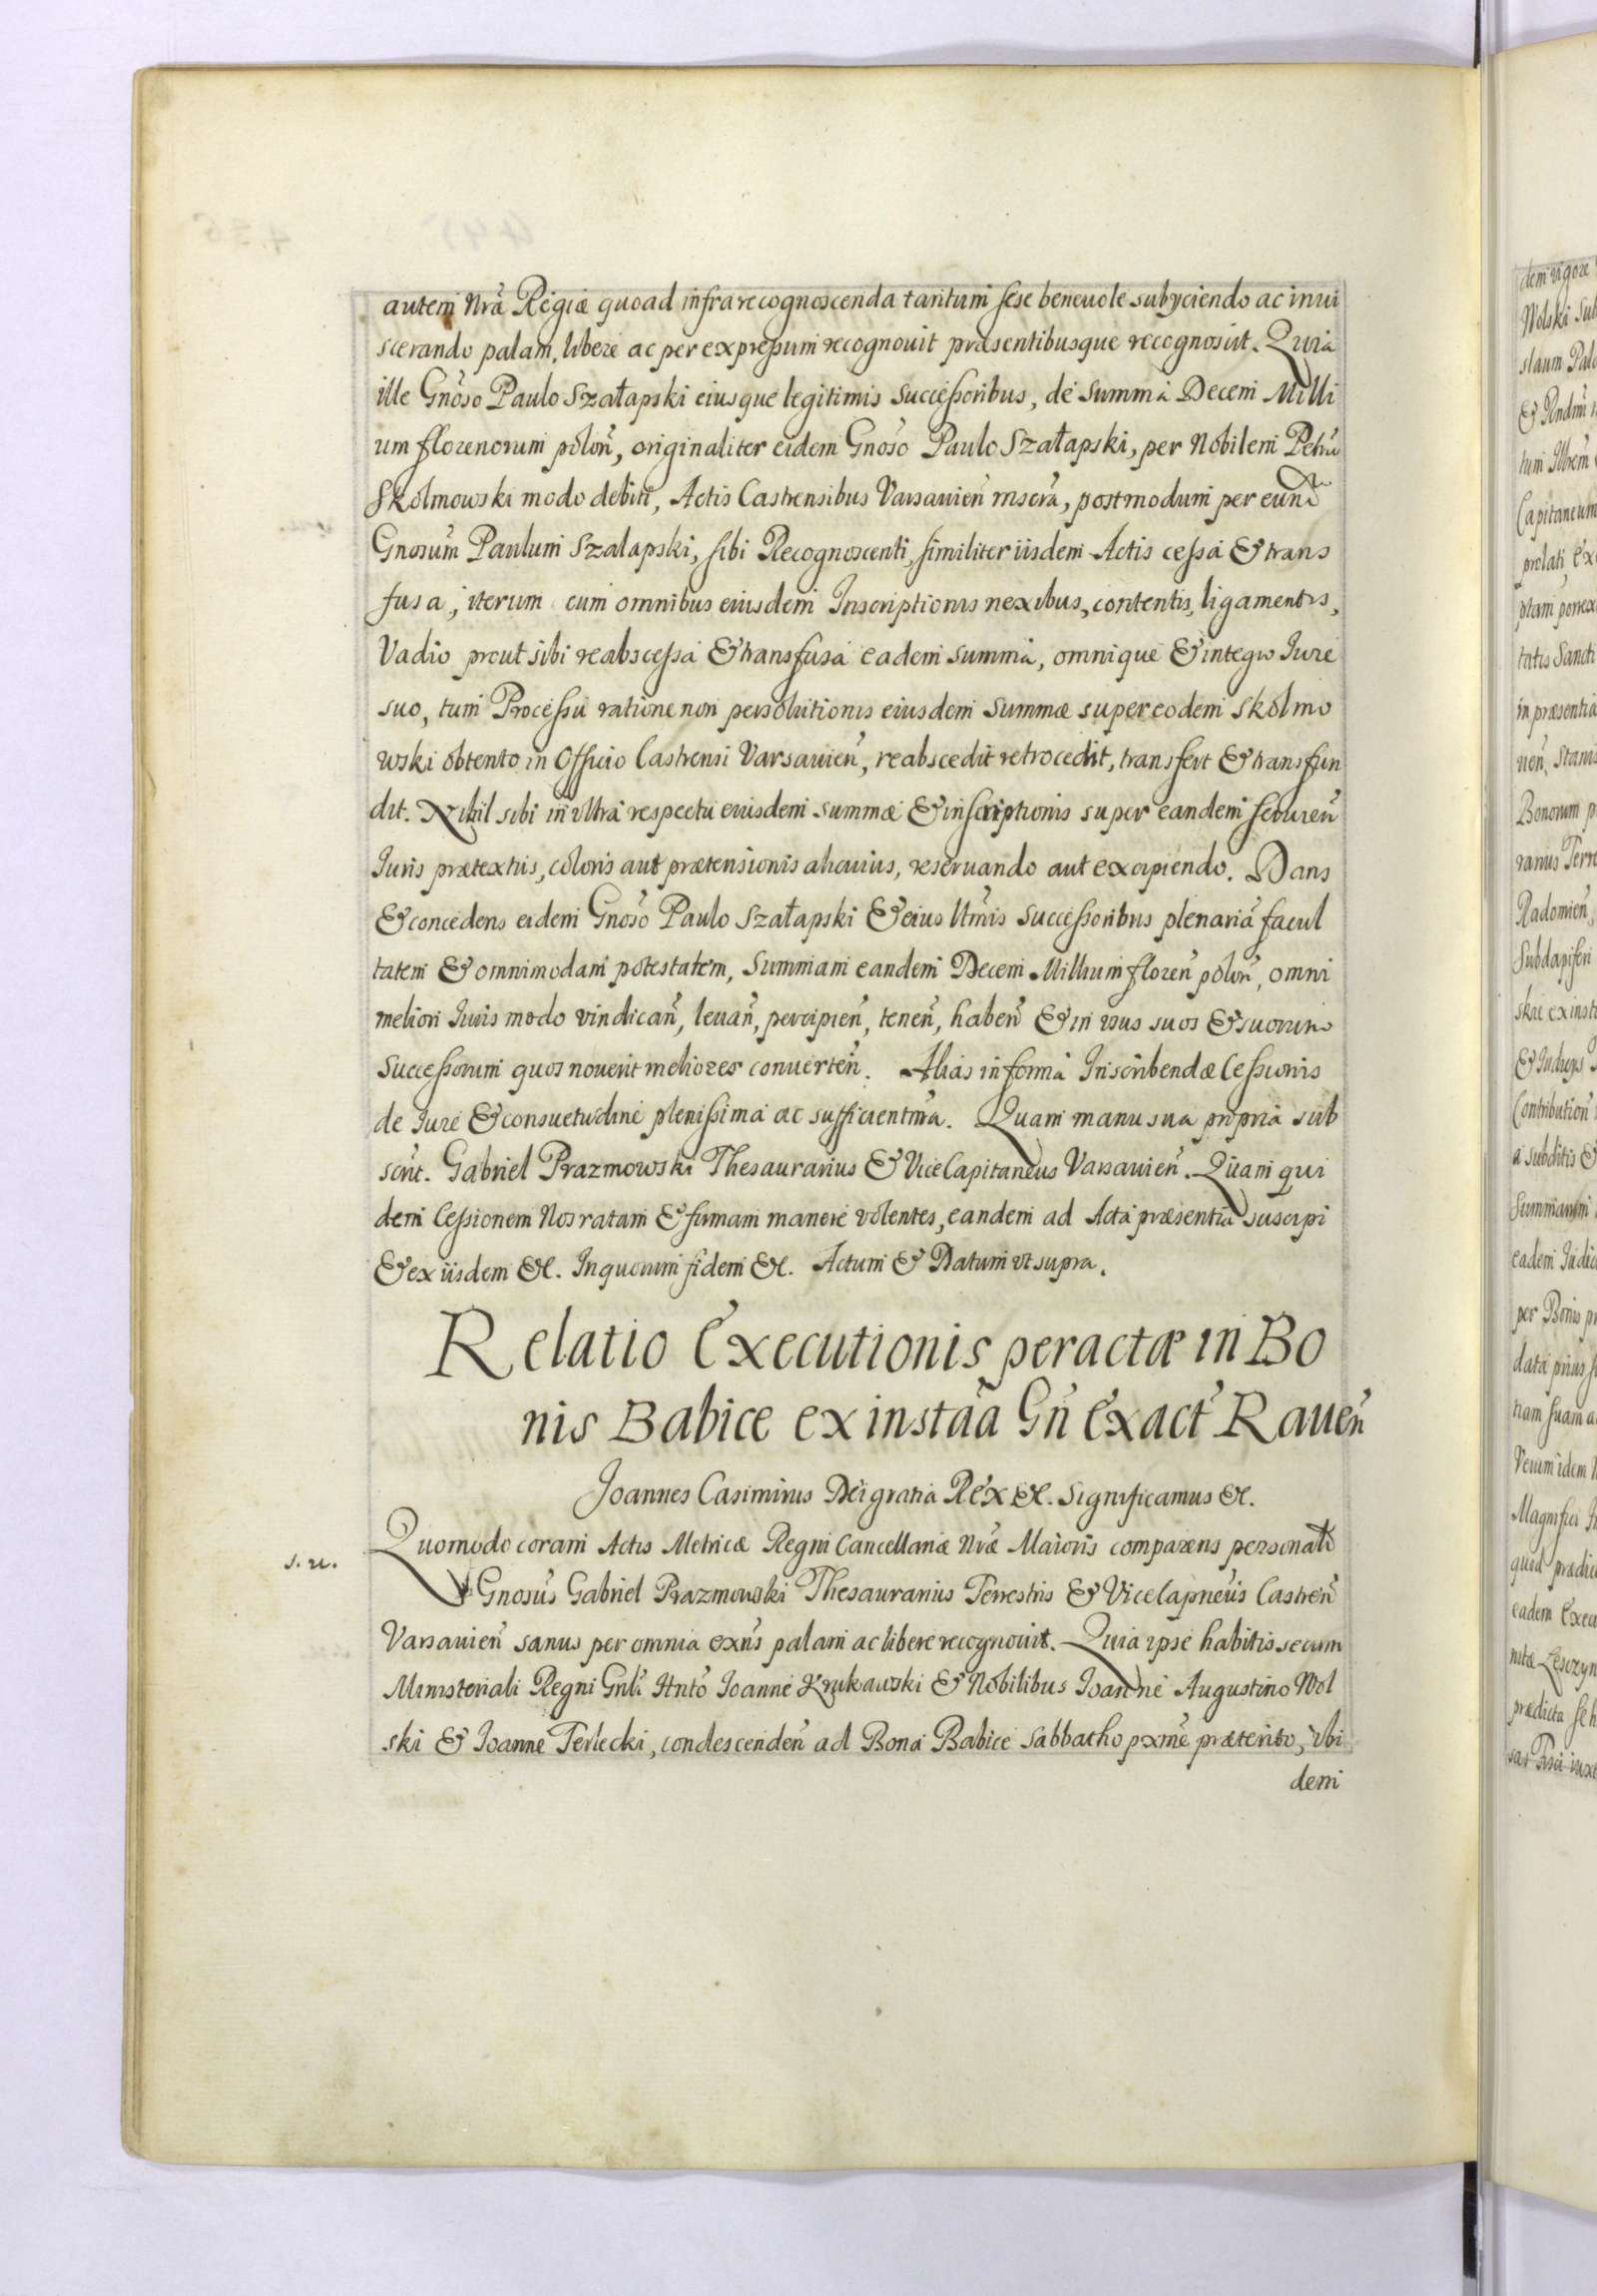 autem Nrã Regiæ quoad infrarecognoscenda tantum sese beneuole subyciendo ac inui
scerando palam, libere ac per expressum recognouit præsentibusque recognoscit. Quia
ille Gnõso Paulo Szałapski eiusque legitimis successoribus, de summa Decem Milli
um florenorum polon̄, originaliter eidem Gnõso Paulo Szałapski, per Nobilem Petrũ
Skolmowski modo debiti, Actis Castrensibus Varsauien̄ inscrã, postmodum per eund
Gnosum̃ Paulum Szalapski, sibi Recognoscenti, similiter iisdem Actis cessa & trans
fusa, iterum cum omnibus eiusdem Inscriptionis nexibus, contentis, ligamentis,
Vadio prout sibi reabscessa & transfusa eadem summa, omnique & integro Iure
suo, tum Processu ratione non persolutionis eiusdem summæ super eodem Skolmo
wski obtento in Officio Castrensi Varsauien̄, reabscedit retrocedit, transfert & transfun
dit. Nihil sibi in vltra respectu eiusdem summæ & inscriptionis super eandem seruien̄
Iuris prætextus, coloris aut prætensionis alicuius, reseruando aut excipiendo. Dans
& concedens eidem Gnõso Paulo Szałapski & eius ltm̃is successoribus plenariã facul
tatem & omnimodam potestatem, Summam eandem Decem Millium floren̄ polon̄, omni
meliori Iuris modo vindican̄, leuan̄, percipien̄, tenen̄, haben̄ & in vsus suos & suorum
successorum quos nouerit meliores conuerten̄. Alias in forma Inscribendæ Cessionis
de Iure & consuetudine plenissima ac sufficientm̃a. Quam manu sua propria sub
scrit̃. Gabriel Prazmowski Thesaurarius & ViceCapitaneus Varsauien̄. Quam qui
dem Cessionem Nos ratam & firmam manere volentes, eandem ad Acta præsentia suscipi
& ex iisdem &c. In quorum fidem &c. Actum & Datum vt supra.
Relatio Executionis peractæ in Bo
nis Babice ex instãa Gn̄ Exact̃ Rauen̄
Joannes Casimirus Dei gratia Rex &c. Significamus &c.
s. u.
Quomodo coram Actis Metricæ Regni Cancellariæ Nræ̃ Maioris comparens personalr
Gnosũs Gabriel Prazmowski Thesaurarius Terrestris & Vicecapneũs Castren̄
Varsauien̄ sanus per omnia exn̄s palam ac libere recognouit. Quia ipse habitis secum
Ministeriali Regni Gnli̇̃ Hntõ Joanne Krukawski & Nobilibus Joanne Augustino Wol
ski & Joanne Terlecki, condescenden̄ ad Bona Babice sabbatho pxmẽ præterito, vbi
dem